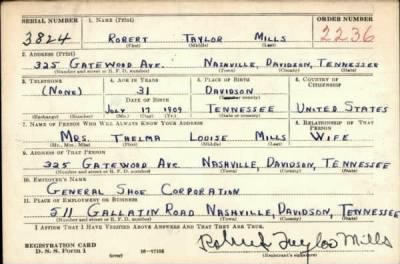 SERIAL NUMBER 1. NAME (Print) ORDER NUMBER
3824 ROBERT TAYLOR MILLS 2236
(First) (Middle) (Last)
2. ADDRESS (Print)
325 GATEWOOD AVE. NASHVILLE, DAVIDSON, TENNESSEE
(Number and street or R. F. D. number) (Town) (County) (State)
3. TELEPHONE 4. AGE IN YEARS 5. PLACE OF BIRTH 6. COUNTRY OF CITIZENSHIP
(NONE) 31 DAVIDSON
DATE OF BIRTH (Town or county)
JULY 17 1909 TENNESSEE UNITED STATES
(Exchange) (Number) (Mo.) (Day) (Yr.) (State or country)
7. NAME OF PERSON WHO WILL ALWAYS KNOW YOUR ADDRESS 8. RELATIONSHIP OF THAT PERSON
MRS. THELMA LOUISE MILLS WIFE
(Mr., Mrs., Miss) (First) (Middle) (Last)
9. ADDRESS OF THAT PERSON
325 GATEWOOD AVE. NASHVILLE, DAVIDSON, TENNESSEE
(Number and street or R. F. D. number) (Town) (County) (State)
10. EMPLOYER'S NAME
GENERAL SHOE CORPORATION
11. PLACE OF EMPLOYMENT OR BUSINESS
511 GALLATIN ROAD NASHVILLE, DAVIDSON, TENNESSEE
(Number and street or R. F. D. number) (Town) (County) (State)
I AFFIRM THAT I HAVE VERIFIED ABOVE ANSWERS AND THAT THEY ARE TRUE.
REGISTRATION CARD
D. S. S. Form 1 (over) Robert Taylor Mills
(Registrant's signature)